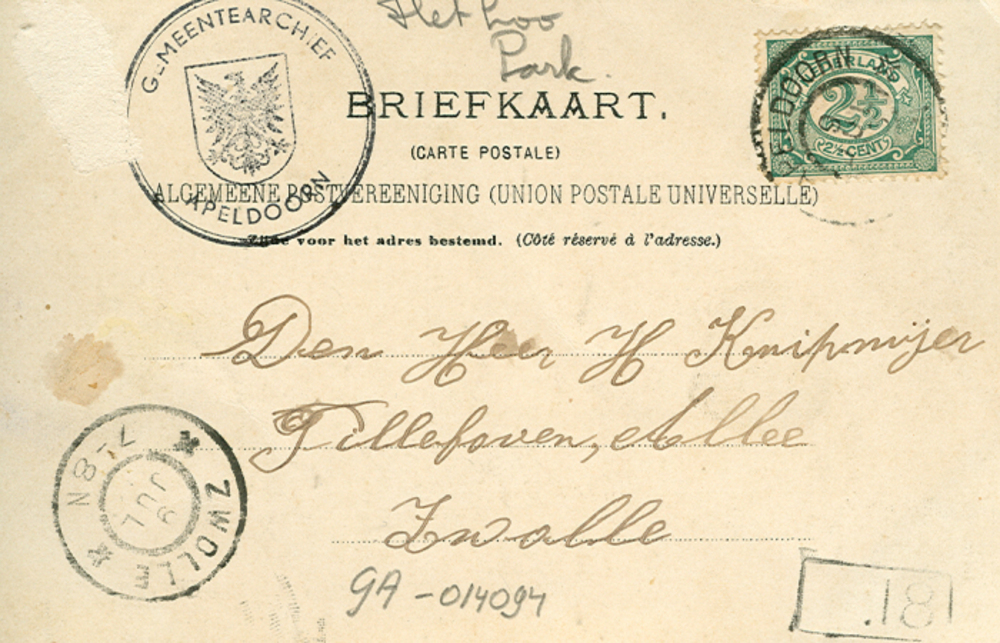 Het Loo
Park.
GEMEENTEARCHIEF
APELDOORN
BRIEFKAART.
(CARTE POSTALE)
ALGEMEENE POSTVEREENIGING (UNION POSTALE UNIVERSELLE)
Zijde voor het adres bestemd. (Côté réservé à l'adresse.)
NEDERLAND
2½
2½ CENT
APELDOORN
Den Heer H Knipmijer
Allee
Zwolle
7-8N
JUL
ZWOLLE
GA-014094
.18